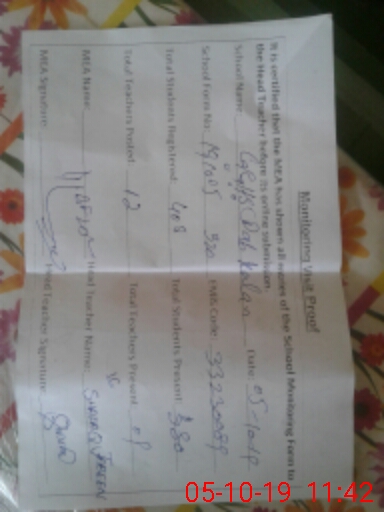 Monitoring Visit Proof
It is certified that the MEA has shown all pages of the School Monitoring Form to
the Head Teacher before its online submission.
School Name: GGHS Dal Date: 05-10-19
School Form No: EMIS Code: 33230089
Total Students Registered: 408 Total Students Present: 380
Total Teachers Posted: 12 Total Teachers Present: 09
MEA Name: Head Teacher Name:
MEA Signature: Head Teacher Signature:
05-10-19 11:42